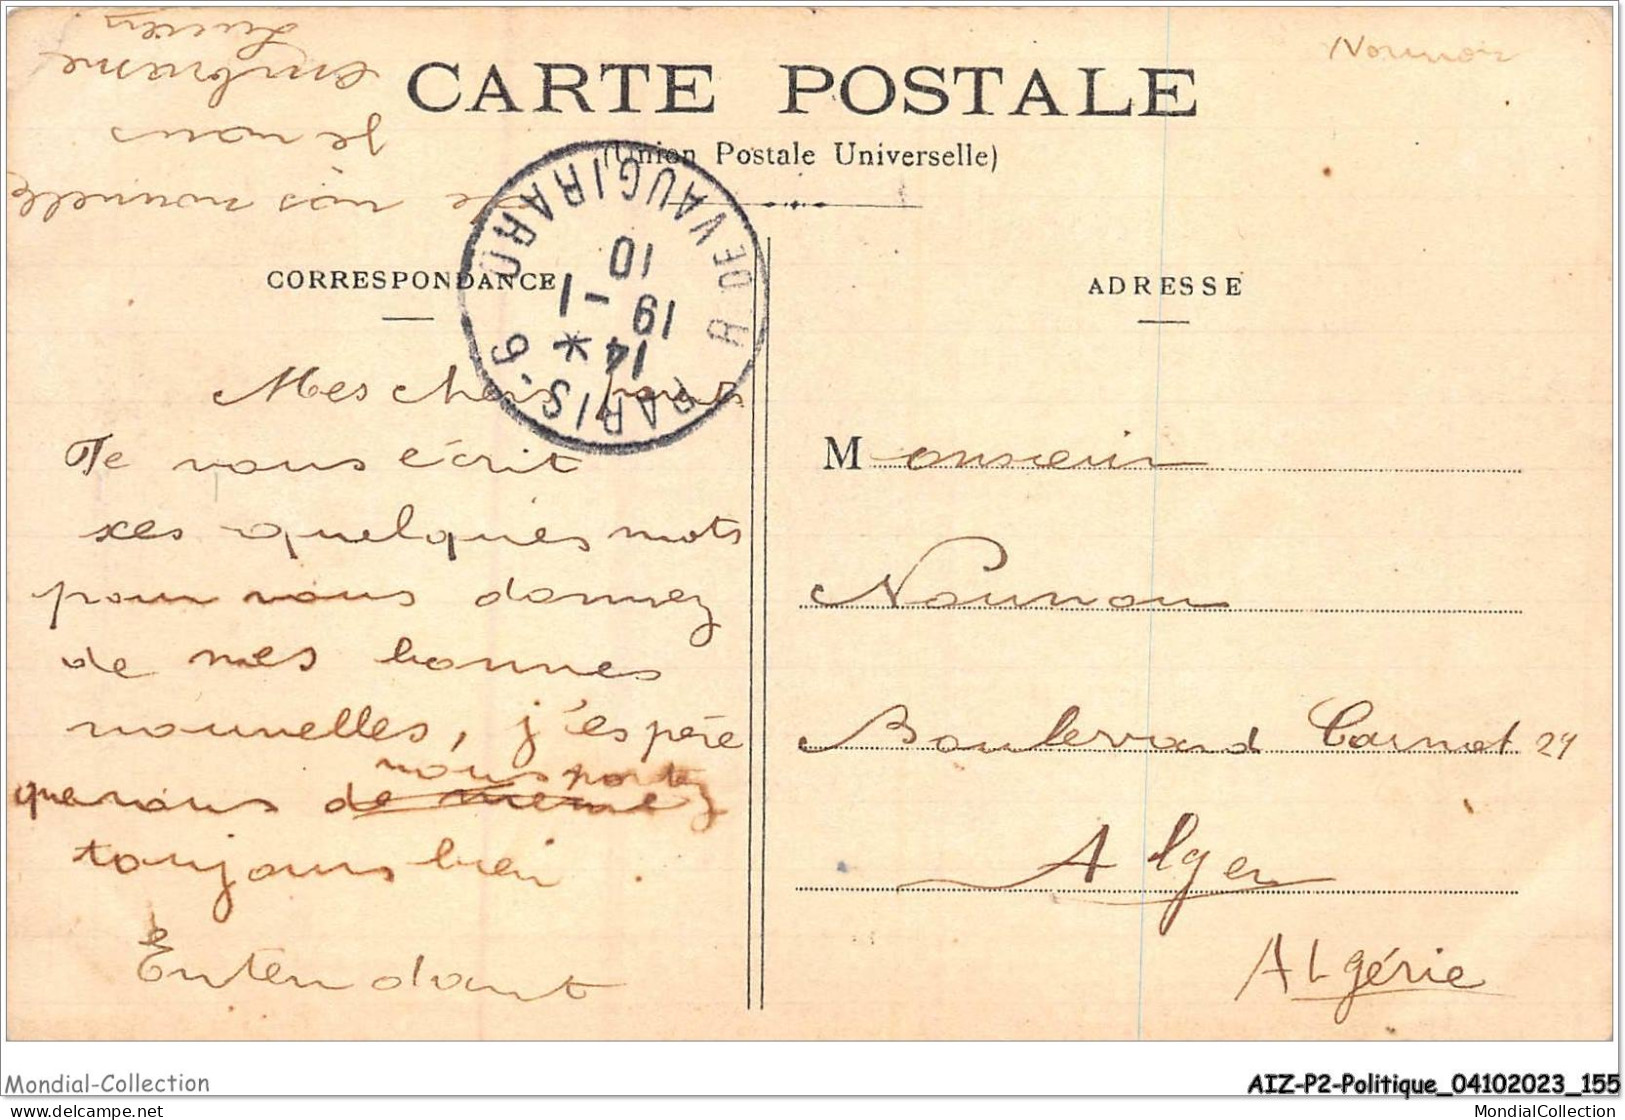 CARTE POSTALE
(Union Postale Universelle)
Nounou
CORRESPONDANCE
ADRESSE
R DE VAUGIRARD
PARIS-6
14 *
19 - 1
10
Mes chers
Je vous écrit
ses quelques mots
pour vous donnez
de mes bonnes
nouvelles, j'espère
que vous de meme
vous portez
toujours bien.
En tendant
de vos nouvelle
Je vous
embrasse
Lucien
Monsieur
Nounou
Boulevard Carnot 29
Alger
Algérie
Mondial-Collection
delcampe.net
AIZ-P2-Politique_04102023_155
MondialCollection